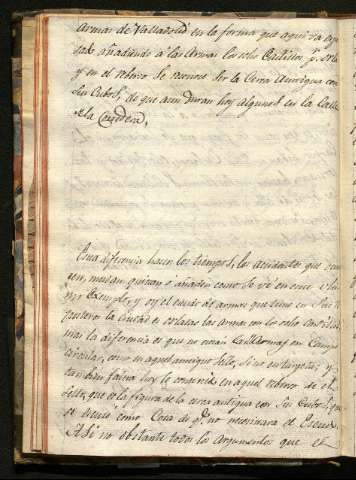 Armas de Valladolid en la forma que aqui va expre
sado añadiendo a las Armas los solos Castillos pr. orla
y en el reberso se reconoce ser la Cerca Antigua con
sus Cubos, de que aun duran hoy algunos en la Calle
de la Corredera.
Esta diferencia hacen los tiempos, los accidentes que
mudan, quitan o añaden como se ve en este
exemplo, y oy el escudo de armas que tiene en sus
la Ciudad es orladas las armas con los solos castillos
mas la diferencia es que no en Campo
circular, como en aquel antiguo sello, sino en targeta; y
tambien falta hoy lo contenido en aquel reberso de el
sello, que es la figura de la cerca antigua con sus Cubos, que
es como Cosa de qe. no necesitara el Escudo.
Assi no obstante todos los argumentos que el